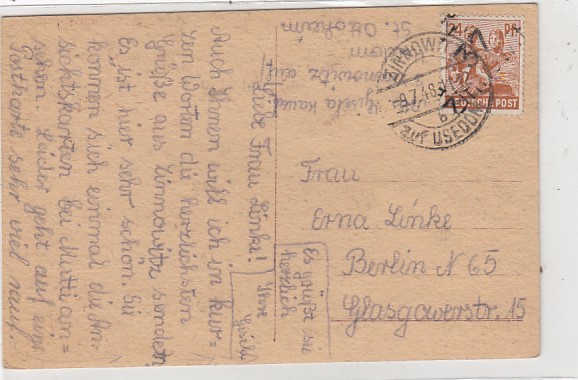 Liebe Frau Linke!
Auch Ihnen will ich in kur=
zen Worten die herzlichsten
Grüße aus Zinnowitz senden.
Es ist hier sehr schön. Sie
können sich einmal die An=
sichtskarten bei Mutti an=
sehen. Leider geht auf eine
Postkarte sehr viel rauf
Es grüßt sie
herzlich
Ihre
Gisela
Gisela
Zinnowitz auf
Usedom
St. Ottoheim
24 PF
DEUTSCHE POST
ZINNOWITZ
9.7.48
b
auf USEDOM
Frau
Erna Linke
Berlin N 65
Glasgowerstr. 15